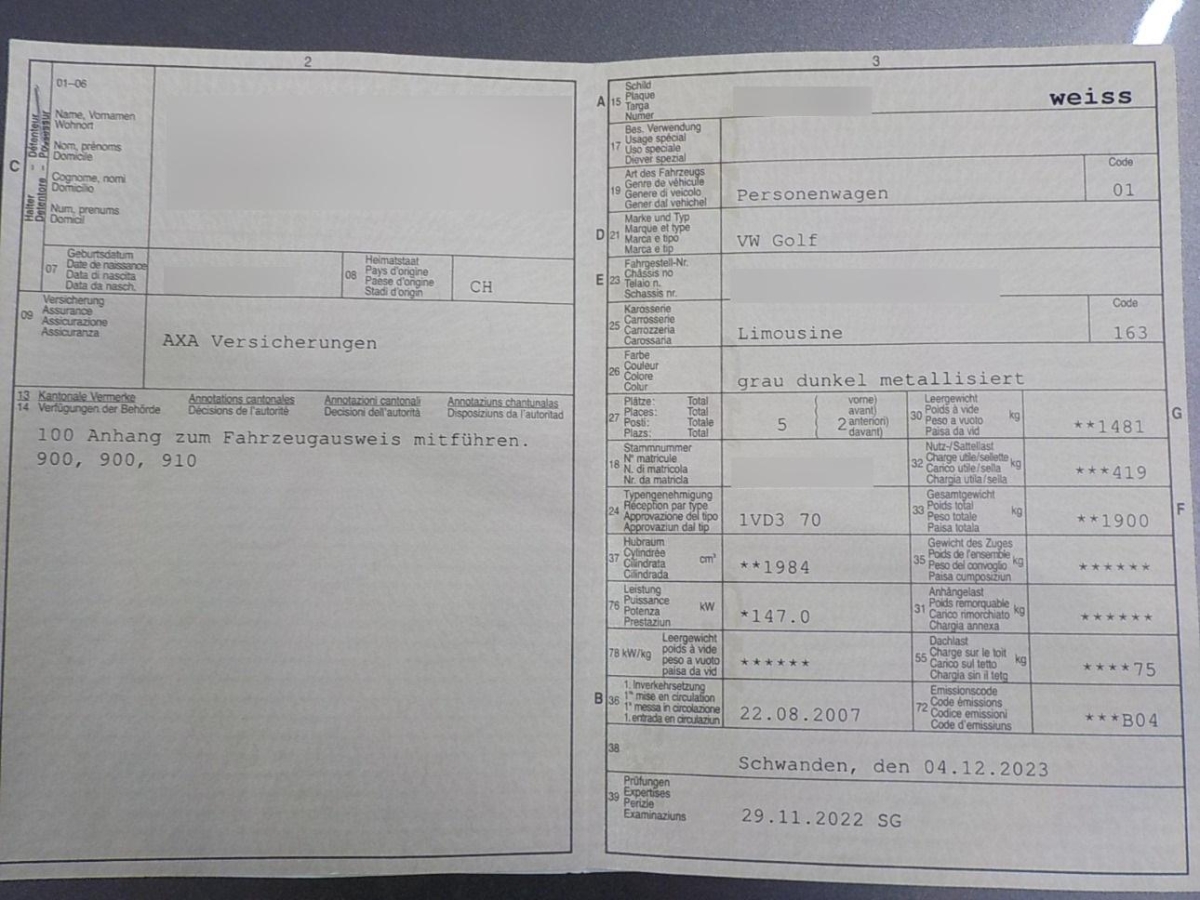 2
01–06
Name, Vornamen
Wohnort
Nom, prénoms
Domicile
Cognome, nomi
Domicilio
Num, prenums
Domicil
C
Halter – Détenteur
Detentore – Possessur
07
Geburtsdatum
Date de naissance
Data di nascita
Data da nasch.
08
Heimatstaat
Pays d'origine
Paese d'origine
Stadi d'origin
CH
09
Versicherung
Assurance
Assicurazione
Assicuranza
AXA Versicherungen
13 Kantonale Vermerke Annotations cantonales Annotazioni cantonali Annotaziuns chantunalas
14 Verfügungen der Behörde Décisions de l'autorité Decisioni dell'autorità Disposiziuns da l'autoritad
100 Anhang zum Fahrzeugausweis mitführen.
900, 900, 910
3
A 15
Schild
Plaque
Targa
Numer
weiss
17
Bes. Verwendung
Usage spécial
Uso speciale
Diever spezial
19
Art des Fahrzeugs
Genre de véhicule
Genere di veicolo
Gener dal vehichel
Personenwagen
Code
01
D 21
Marke und Typ
Marque et type
Marca e tipo
Marca e tip
VW Golf
E 23
Fahrgestell-Nr.
Châssis no
Telaio n.
Schassis nr.
25
Karosserie
Carrosserie
Carrozzeria
Carossaria
Limousine
Code
163
26
Farbe
Couleur
Colore
Colur
grau dunkel metallisiert
27
Plätze: Total
Places: Total
Posti: Totale
Plazs: Total
5
( vorne)
avant)
2 anteriori)
( davant)
30
Leergewicht
Poids à vide
Peso a vuoto
Paisa da vid
kg
**1481
G
18
Stammnummer
N° matricule
N. di matricola
Nr. da matricla
32
Nutz-/Sattellast
Charge utile/sellette
Carico utile/sella
Chargia utila/sella
kg
***419
24
Typengenehmigung
Réception par type
Approvazione del tipo
Approvaziun dal tip
1VD3 70
33
Gesamtgewicht
Poids total
Peso totale
Paisa totala
kg
**1900
F
37
Hubraum
Cylindrée
Cilindrata
Cilindrada
cm³
**1984
35
Gewicht des Zuges
Poids de l'ensemble
Peso del convoglio
Paisa cumposiziun
kg
******
76
Leistung
Puissance
Potenza
Prestaziun
kW
*147.0
31
Anhängelast
Poids remorquable
Carico rimorchiato
Chargia annexa
kg
******
78 kW/kg
Leergewicht
poids à vide
peso a vuoto
paisa da vid
******
55
Dachlast
Charge sur le toit
Carico sul tetto
Chargia sin il tetg
kg
****75
B 36
1. Inverkehrsetzung
1re mise en circulation
1a messa in circolazione
1. entrada en circulaziun
22.08.2007
72
Emissionscode
Code émissions
Codice emissioni
Code d'emissiuns
***B04
38
Schwanden, den 04.12.2023
39
Prüfungen
Expertises
Perizie
Examinaziuns
29.11.2022 SG